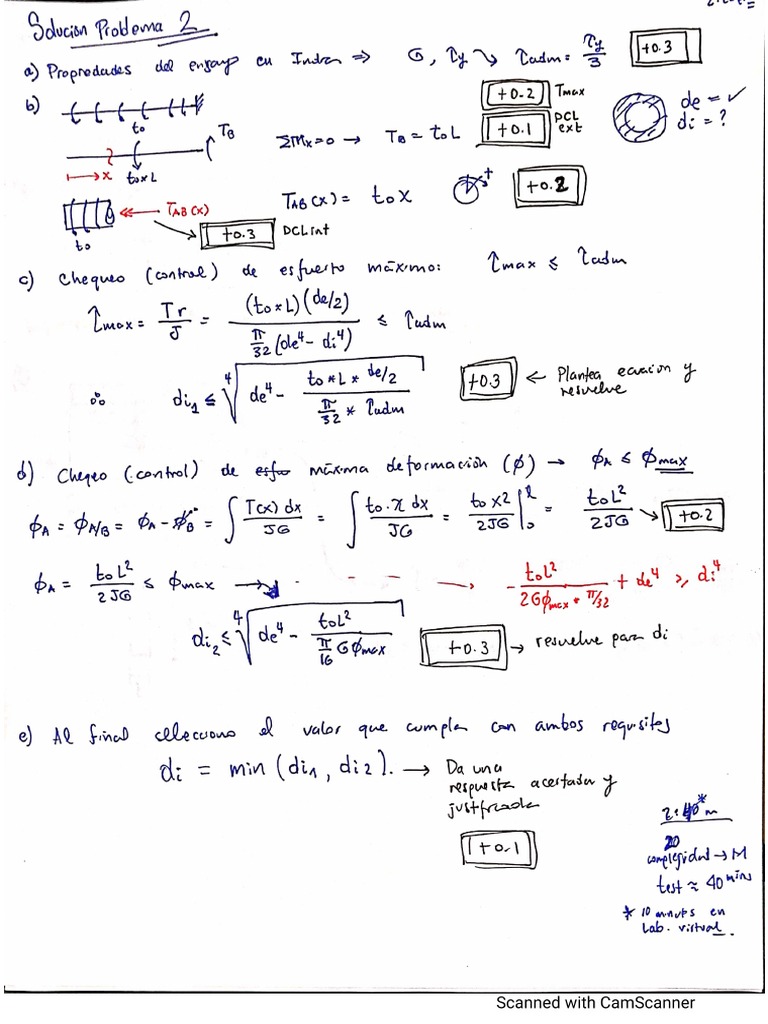 Solución Problema 2
a) Propiedades del ensayo en Instron ⇒ G, τy ↘ τadm = τy/3 +0.3
b)
to
TB
ΣMx=0 → TB = toL
+0.2 Tmax
+0.1 DCL ext
de = ✓
di = ?
x
to x L
TAB(x)
TAB(x) = to x
+
+0.2
to
+0.3 DCL int
c) Chequeo (control) de esfuerzo máximo: τmax ≤ τadm
τmax = Tr/J = (to*L)(de/2) / (π/32 (de⁴ - di⁴)) ≤ τadm
∴ di1 ≤ ⁴√(de⁴ - (to*L*de/2)/(π/32 * τadm))
+0.3 ← Plantea ecuacion y resuelve
d) Cheqeo (control) de máxima deformación (ϕ) → ϕA ≤ ϕmax
ϕA = ϕA/B = ϕA - ϕB⁰ = ∫ T(x) dx/JG = ∫ to·x dx/JG = to x2/2JG |₀ᴸ = toL²/2JG → +0.2
ϕA = toL²/2JG ≤ ϕmax → - - - → - toL²/(2Gϕmax * π/32) + de⁴ ≥ di⁴
di2 ≤ ⁴√(de⁴ - toL²/(π/16 G ϕmax))
+0.3 → resuelve para di
e) Al final selecciono el valor que cumpla con ambos requisitos
di = min (di1, di2). → Da una
respuesta acertada y
justificada
+0.1
20
complegidad → M
test ≈ 40 mins
* 10 minuts en
Lab. virtual.
Scanned with CamScanner